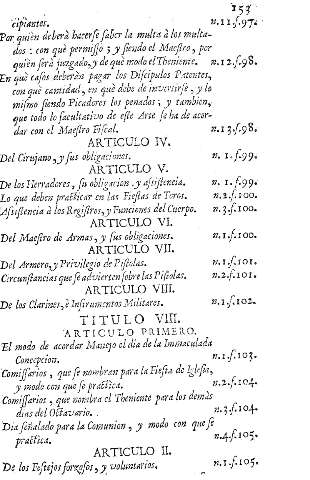 153
cipiantes. n.11.f.97.
Por quièn deberà hacerse saber la multa à los multa-
dos: con què permisso; y siendo el Maestro, por
quièn serà juzgado, y de què modo el Theniente. n.12.f.98.
En què casos deberàn pagar los Discipulos Patentes,
con què cantidad, en què debe de invertirse, y lo
mismo siendo Picadores los penados; y tambien,
que todo lo facultativo de este Arte se ha de acor-
dar con el Maestro Fiscal. n.13.f.98.
ARTICULO IV.
Del Cirujano, y sus obligaciones. n.1.f.99.
ARTICULO V.
De los Herradores, su obligacion, y assistencia. n.1.f.99.
Lo que deben practicar en las Fiestas de Toros. n.2.f.100.
Assistencia à los Registros, y Funciones del Cuerpo. n.3.f.100.
ARTICULO VI.
Del Maestro de Armas, y sus obligaciones. n.1.f.100.
ARTICULO VII.
Del Armero, y Privilegio de Pistolas. n.1.f.101.
Circunstancias que se advierten sobre las Pistolas. n.2.f.101.
ARTICULO VIII.
De los Clarines, è Instrumentos Militares. n.1.f.102.
TITULO VIII.
ARTICULO PRIMERO.
El modo de acordar Manejo el dia de la Immaculada
Concepcion. n.1.f.103.
Comissarios, que se nombren para la Fiesta de Iglesia,
y modo con que se practìca. n.2.f.104.
Comissarios, que nombra el Theniente para los demàs
dias del Octavario. n.3.f.104.
Dia señalado para la Comunion, y modo con que se
practica. n.4.f.105.
ARTICULO II.
De los Festejos forzosos, y voluntarios. n.1.f.105.